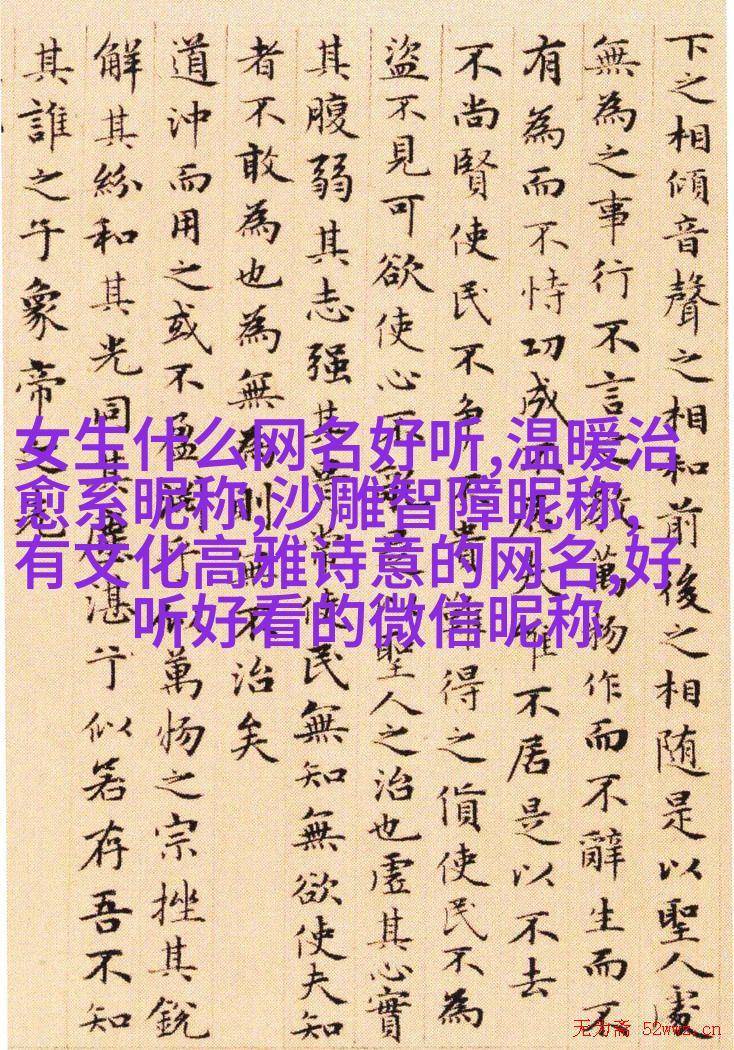 下之相傾音聲之相和前後之相随是以聖人處
無為之事行不言之教萬物作而不辭生而不
有為而不恃功成不居夫唯不居是以不去
不尚賢使民不争不貴難得之貨使民不為
盜不見可欲使心不亂是以聖人之治也虛其心實
其腹弱其志强其骨常使民無知無欲使夫知
者不敢為也為無為則無不治矣
道沖而用之或不盈淵兮似萬物之宗挫其銳
解其紛和其光同其塵湛兮似若存吾不知
其誰之子象帝之先
女生什么网名好听,温暖治
愈系昵称,沙雕智障昵称,
有文化高雅诗意的网名,好
听好看的微信昵称
无为斋 52wwz.cn